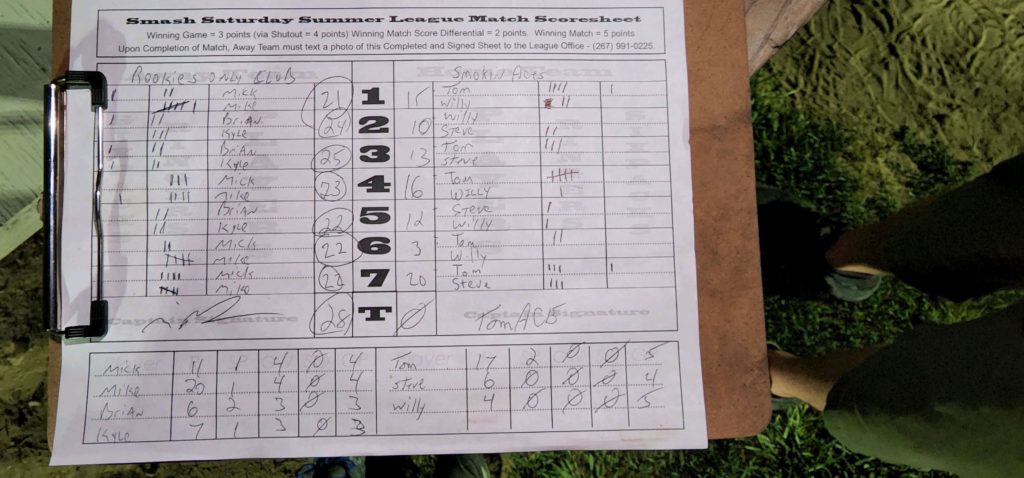 Smash Saturday Summer League Match Scoresheet
Winning Game = 3 points (via Shutout = 4 points) Winning Match Score Differential = 2 points. Winning Match = 5 points
Upon Completion of Match, Away Team must text a photo of this Completed and Signed Sheet to the League Office - (267) 991-0225.
Rookies Only Club Smokin Aces
Mick 21 1 Tom
Mike Willy
Brian 24 2 10 Willy
Kyle Steve
Brian 25 3 13 Tom
Kyle Steve
Mick 23 4 16 Tom
Mike Willy
Brian 22 5 12 Steve
Kyle Willy
Mick 22 6 3 Tom
Mike Willy
Mick 22 7 20 Tom
Mike Steve
Captain Signature 28 T Ø Captain Signature
Tom Ace
Mick 11 1 4 Ø 4 Tom 17 2 Ø Ø 5
Mike 20 1 4 Ø 4 Steve 6 Ø Ø Ø 4
Brian 6 2 3 Ø 3 Willy 4 Ø Ø Ø 5
Kyle 7 1 3 Ø 3